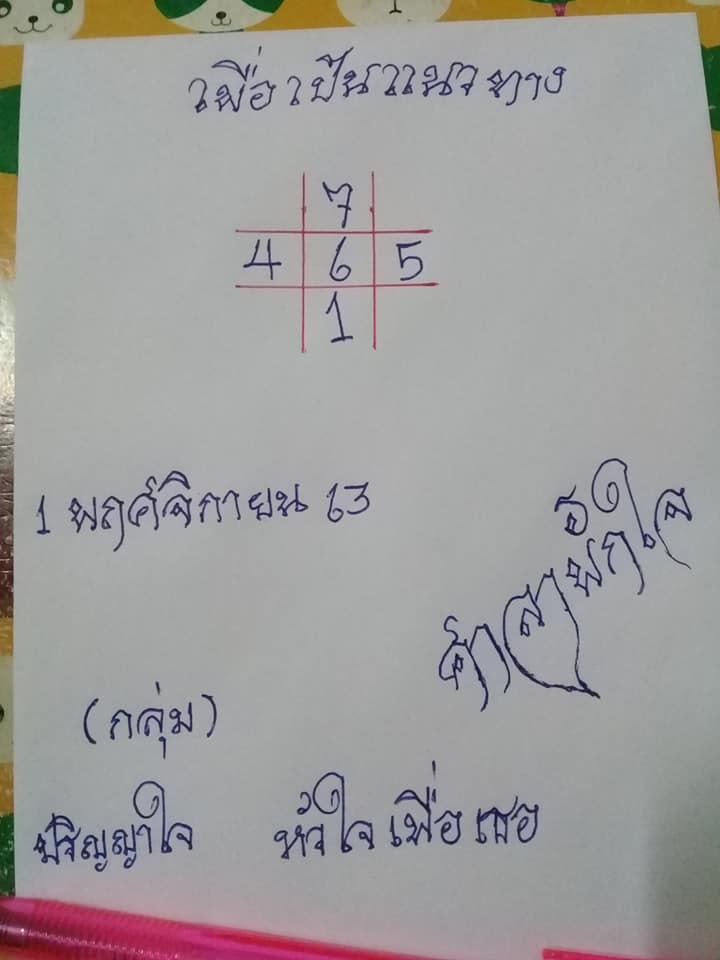 เพื่อเป็นแนวทาง
7
4 6 5
1
1 พฤศจิกายน 63
(กลุ่ม)
ปริญญาใจ หัวใจเพื่อเธอ